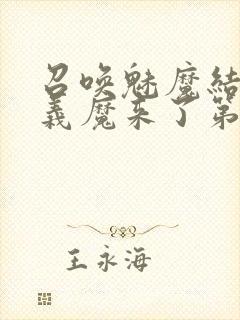 召唤魅魔结
义魔来了第
王永海